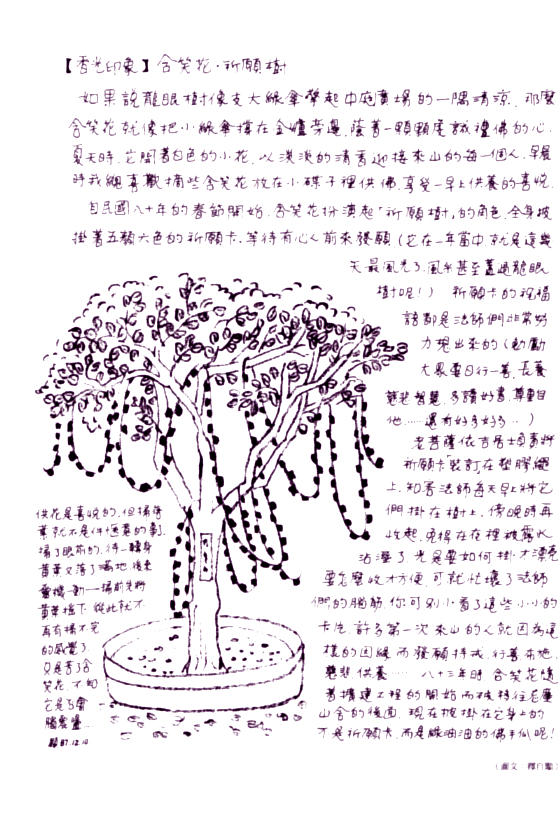 【香光印象】含笑花·祈願樹
如果說龍眼樹像支大綠傘撐起中庭廣場的一隅清涼，那麼
含笑花就像把小綠傘撐在金爐旁邊，蔭著一顆顆虔誠禮佛的心。
夏天時，它開著白色的小花，以淡淡的清香迎接來山的每一個人。早晨
時我總喜歡摘些含笑花放在小碟子裡供佛，享受一早上供養的喜悅。
自民國八十年的春節開始，含笑花扮演起「祈願樹」的角色，全身披
掛著五顏六色的祈願卡，等待有心人前來發願（它在一年當中，就是這幾
天最風光了，風采甚至蓋過龍眼
樹呢！）　祈願卡的祝福
語都是法師們非常努
力現出來的（勸勵
大眾要日行一善、長養
慈悲智慧、多讀好書、尊重自
他……還有好多好多…）
老菩薩依吉居士負責將
祈願卡裝訂在塑膠繩
上，知客法師每天早上將它
們掛在樹上，傍晚時再
收起，免得在夜裡被露水
沾溼了。光是要如何掛才漂亮
要怎麼收才方便，可就忙壞了法師
們的腦筋。你可別小看了這些小小的
卡片，許多第一次來山的人就因為這
樣的因緣而發願持戒、行善布施、
慈悲供養……　八十三年時，含笑花隨
著擴建工程的開始而被移往在
山舍的後面，現在披掛在它身上的
不是祈願卡，而是綠油油的佛手瓜呢！
供花是喜悅的，但掃落
葉就不是件愜意的事，
掃了眼前的，待一轉身
落葉又落了滿地。後來
靈機一動──掃前先將
黃葉搖下，從此就不
再有掃不完
的感覺了。
只是苦了含
笑花，不知
它是否會
腦震盪…
87.12.10
（圖文　釋自𪐴）